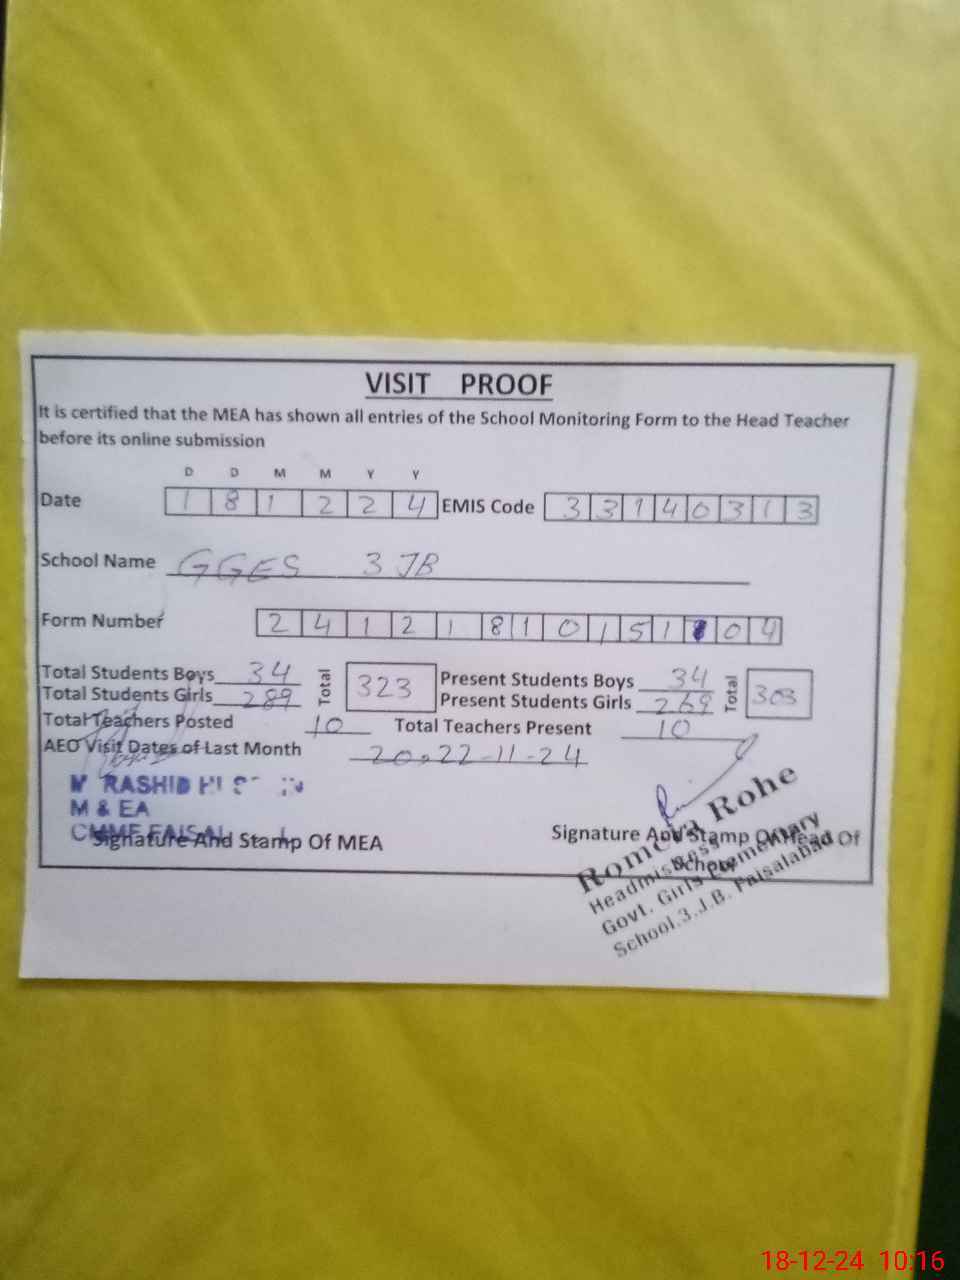 VISIT PROOF
It is certified that the MEA has shown all entries of the School Monitoring Form to the Head Teacher
before its online submission
D D M M Y Y
Date 1 8 1 2 2 4 EMIS Code 3 3 1 4 0 3 1 3
School Name GGES 3 JB
Form Number 2 4 1 2 1 8 1 0 1 5 1 0 4
Total Students Boys 34 Total 323 Present Students Boys 34 Total 303
Total Students Girls 289 Present Students Girls 269
Total Teachers Posted 10 Total Teachers Present 10
AEO Visit Dates of Last Month 20,22-11-24
RASHID
M & EA
CMMF FAISAL
Signature And Stamp Of MEA
Signature And Stamp Of Head Of
School
Romela Rohe
Headmistress
Govt. Girls Elementary
School.3.J.B. Faisalabad
18-12-24 10:16